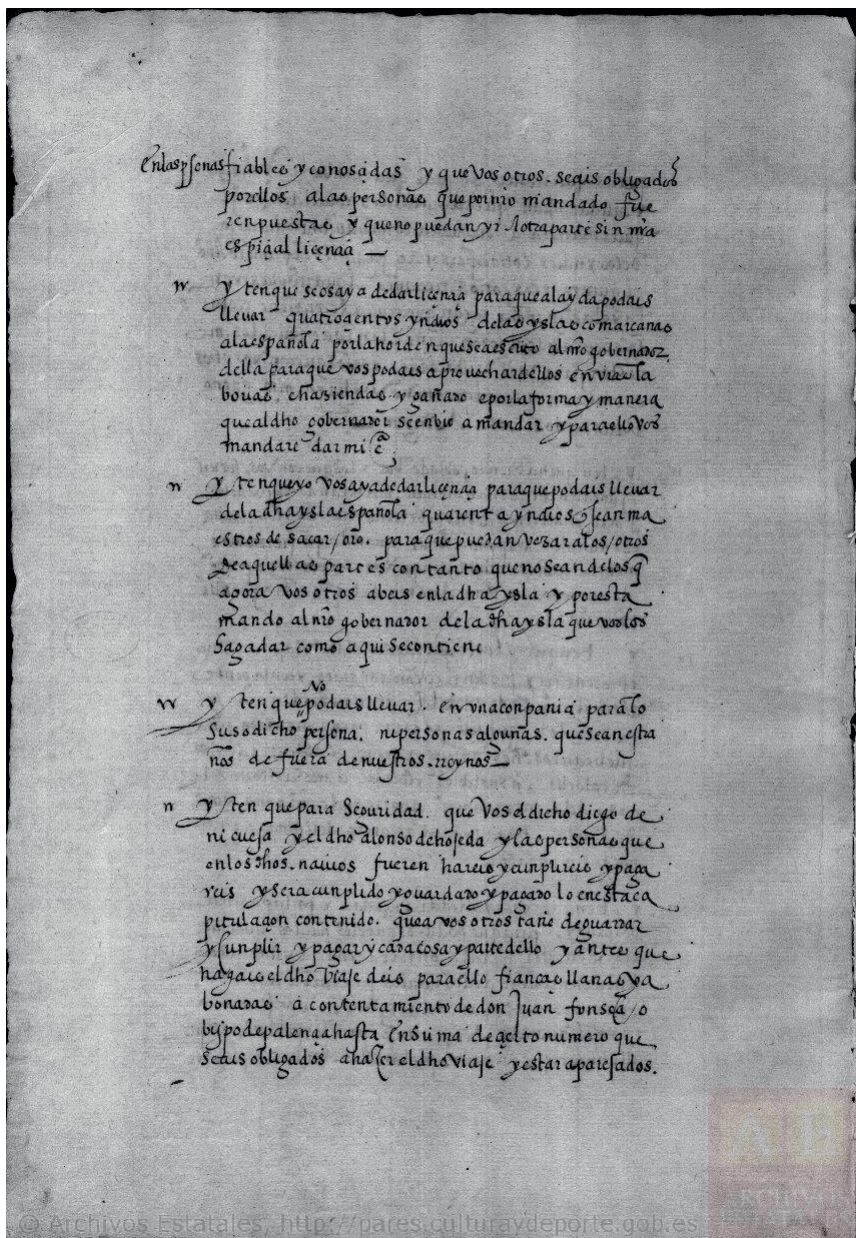 en las psonas fiables y conosçidas y que vos otros seais obligados
por ellos a las personas que por nro mandado fue
ren puestas y que no puedan yr a otra parte sin mra
espiçial liçençia —
Yten que se os aya de dar liçençia para que a la yda podais
llevar quatroçientos yndios de las yslas comarcanas
a la española por la horden que se a escrito al nro gobernador
della para que vos podais aprovechar dellos en vras la
bovas e haziendas y ganado e por la forma y manera
que al dho gobernador se enbio a mandar y para ello vos
mandare dar mi çª
Yten que yo vos aya de dar liçençia para que podais llevar
de la dha ysla española quarenta yndios q sean ma
estros de sacar / oro. para que puedan vezar a los / otros
de aquellas partes con tanto que no sean de los q
agora vos otros abeis en la dha ysla y por esta
mando al nro gobernador de la dha ysla que vos los
haga dar como aqui se contiene
yten que no podais llevar. en vna conpania para lo
susodicho persona, ni personas algunas. que sean estra
ños de fuera de nuestros. reynos —
Yten que para seguridad. que vos el dicho diego de
nicuesa y el dho alonso de hojeda y las personas que
en los dhos. navios fueren hareis y cunplireis y paga
reis y sera cunplido y guardado y pagado lo en esta ca
pitulaçon contenido. que a vos otros tañe de guardar
y cunplir y pagar y cada cosa y parte dello y antes que
hagais el dho viaje deis para ello fianças llanas y a
bonadas a contentamiento de don Juan fonseca / o
bispo de palençia hasta en suma de çierto numero que
seais obligados a hazer el dho viaje y estar aparejados.
© Archivos Estatales, http://pares.culturaydeporte.gob.es